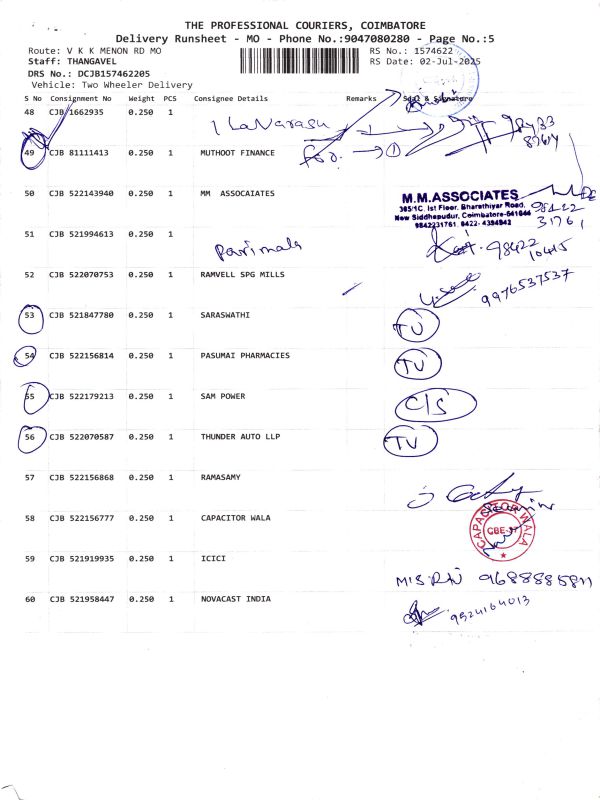 THE PROFESSIONAL COURIERS, COIMBATORE
Delivery Runsheet - MO - Phone No.:9047080280 - Page No.:5
Route: V K K MENON RD MO RS No.: 1574622
Staff: THANGAVEL RS Date: 02-Jul-2025
DRS No.: DCJB157462205
Vehicle: Two Wheeler Delivery
S No Consignment No Weight PCS Consignee Details Remarks Seal & Signature
48 CJB 1662935 0.250 1 Ilavarasu
49 CJB 81111413 0.250 1 MUTHOOT FINANCE for. → 1
50 CJB 522143940 0.250 1 MM ASSOCAIATES
M.M.ASSOCIATES
385/1C, Ist Floor, Bharathiyar Road,
New Siddhapudur, Coimbatore-641044
9842231761, 0422- 4394942
98422
31761
51 CJB 521994613 0.250 1 Parimala 98422
10415
52 CJB 522070753 0.250 1 RAMVELL SPG MILLS 9976537537
53 CJB 521847780 0.250 1 SARASWATHI TU
54 CJB 522156814 0.250 1 PASUMAI PHARMACIES TU
55 CJB 522179213 0.250 1 SAM POWER C/S
56 CJB 522070587 0.250 1 THUNDER AUTO LLP TU
57 CJB 522156868 0.250 1 RAMASAMY
58 CJB 522156777 0.250 1 CAPACITOR WALA
CAPACITOR WALA
CBE-37
59 CJB 521919935 0.250 1 ICICI 9688885811
60 CJB 521958447 0.250 1 NOVACAST INDIA 9524164013